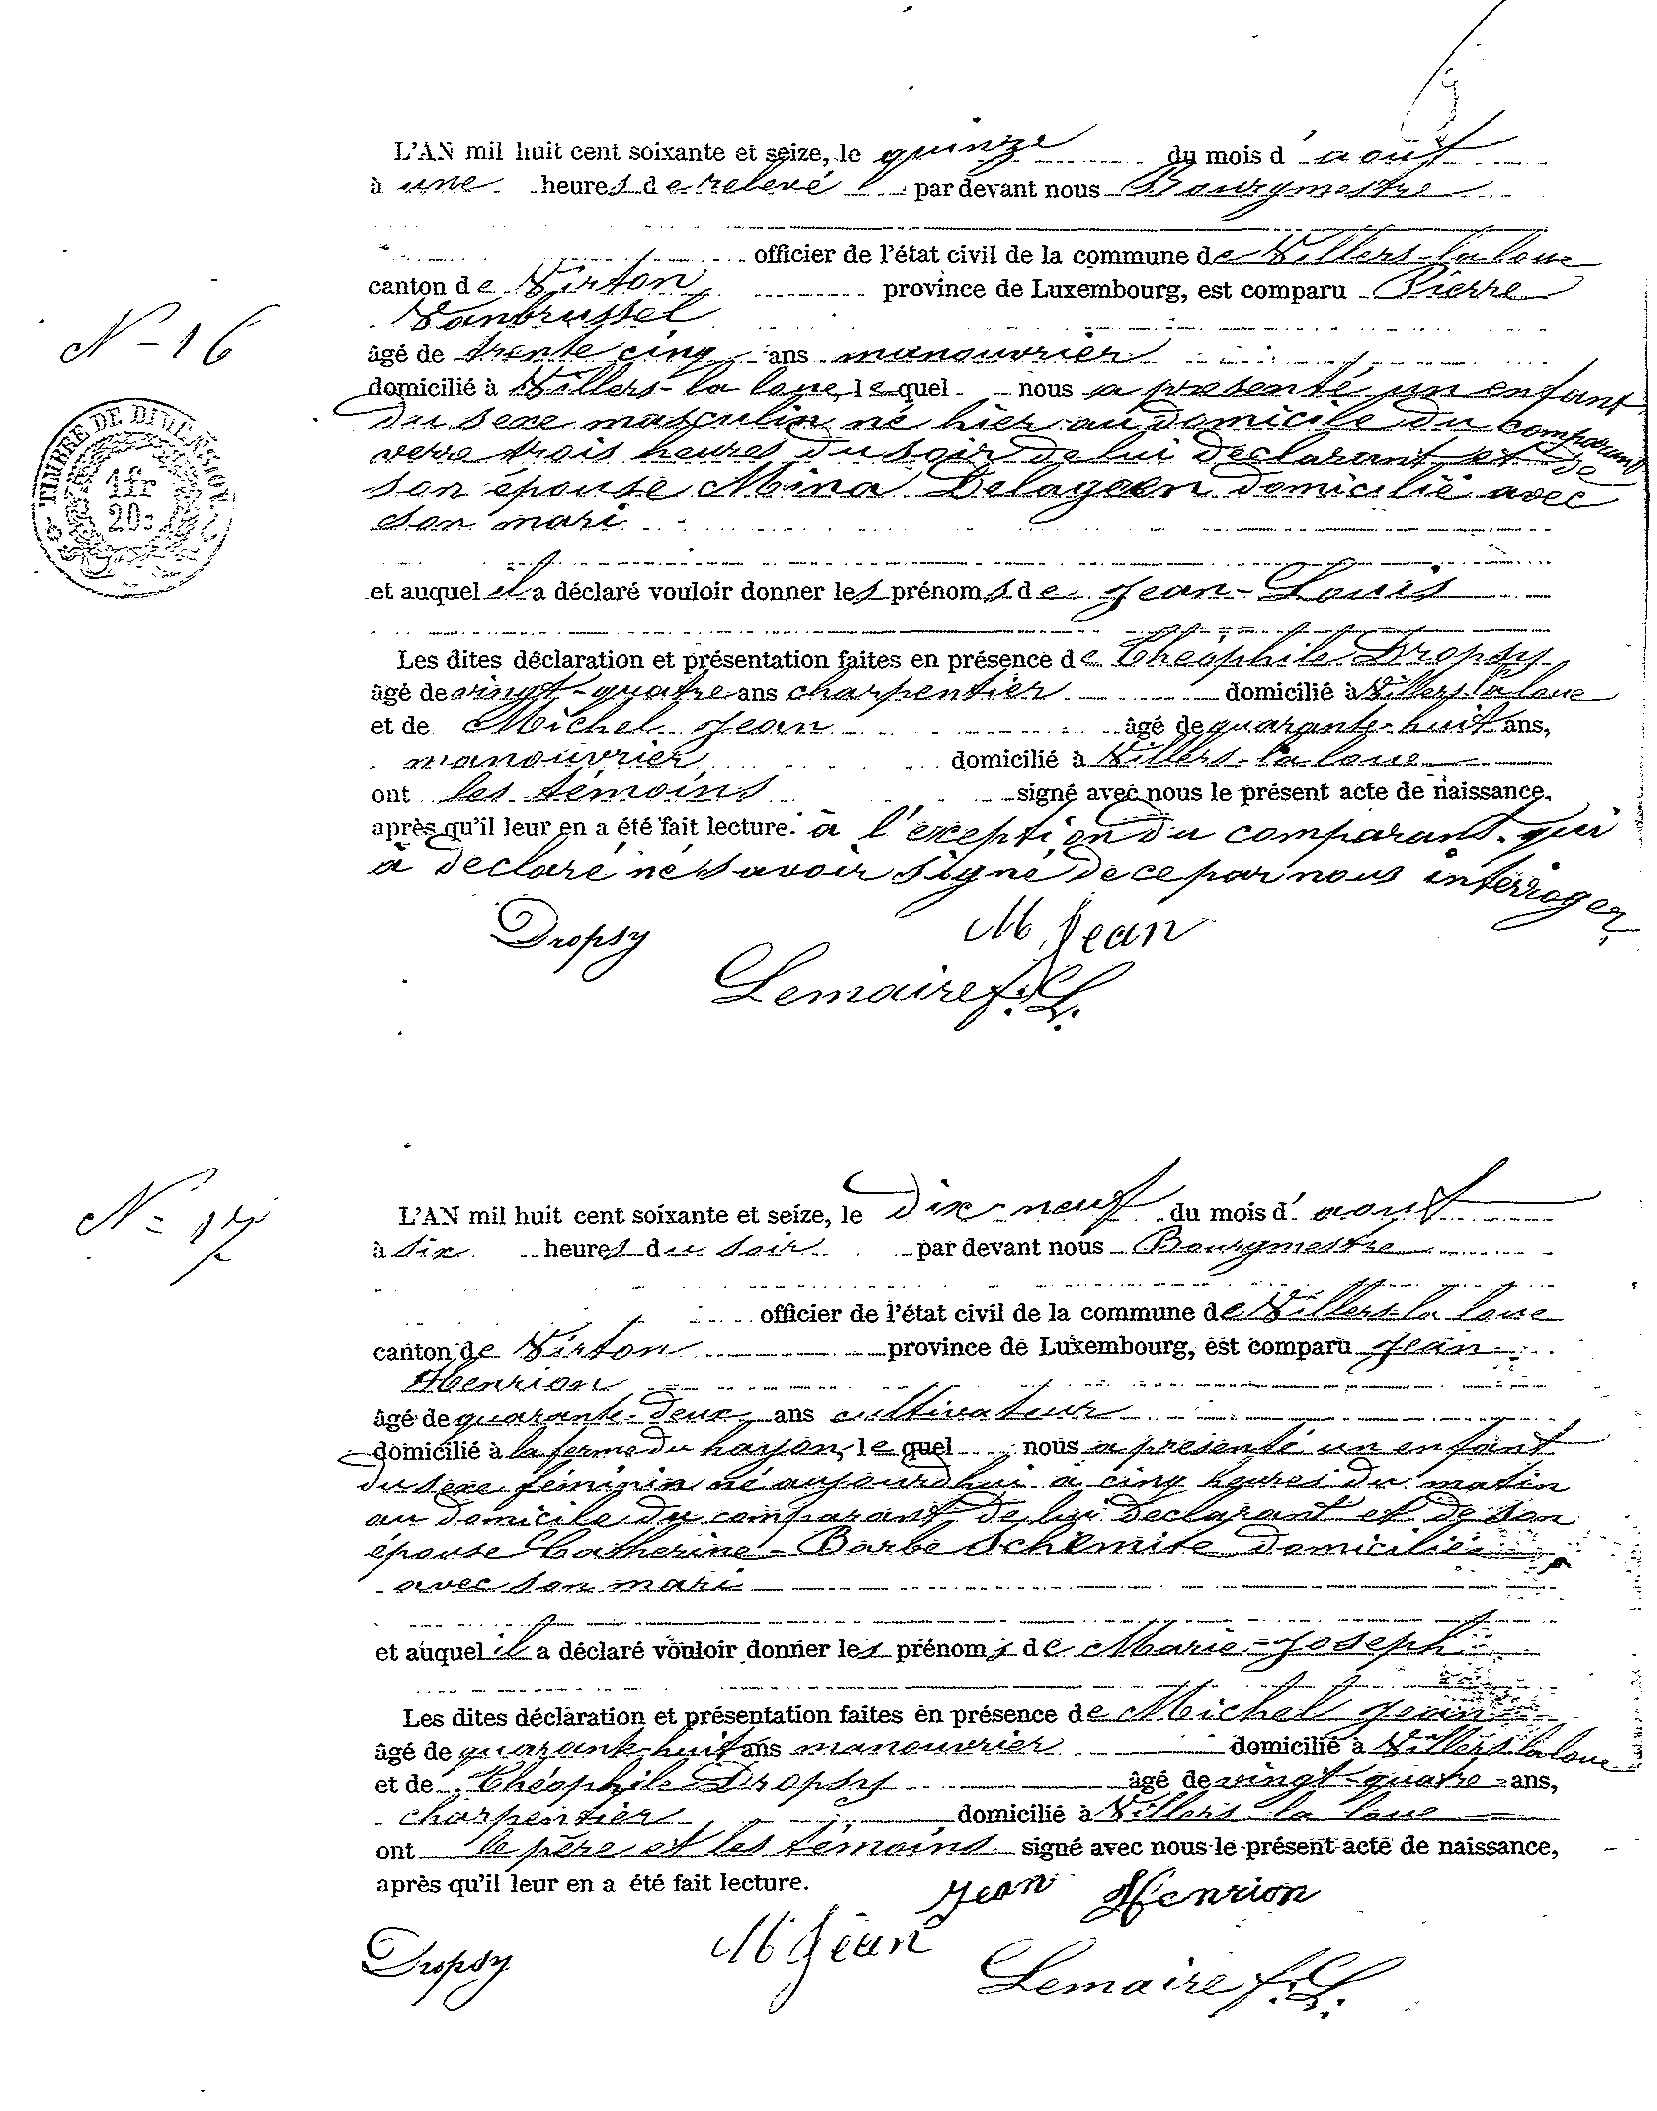 L'AN mil huit cent soixante et seize, le quinze du mois d' aout
à une heures de relevé par devant nous Bourgmestre
officier de l'état civil de la commune de Villers-la loue
canton de Virton province de Luxembourg, est comparu Pierre
Vanbrussel
N-16
âgé de trente cinq ans manouvrier
domicilié à Villers-la loue, lequel nous a presenté un enfant
du sexe masculin né hier au domicile du comparant
verre trois heures du soir de lui declarant et de
son épouse Mina Delageen domicilié avec
son mari
TIMBRE DE DIMENSION
1fr
20c
et auquel il a déclaré vouloir donner les prénoms de Jean-Louis
Les dites déclaration et présentation faites en présence de Théophile Dropsy
âgé de vingt-quatre ans charpentier domicilié à Villers la loue
et de Michel Jean âgé de quarante-huit ans,
manouvrier domicilié à Villers-la loue
ont les témoins signé avec nous le présent acte de naissance,
après qu'il leur en a été fait lecture. à l'exeption du comparant qui
à declaré né savoir signé de ce par nous interroger
Dropsy M Jean
Lemaire f. L.
N-17
L'AN mil huit cent soixante et seize, le dix-neuf du mois d' aout
à six heures du soir par devant nous Bourgmestre
officier de l'état civil de la commune de Villers-la loue
canton de Virton province de Luxembourg, est comparu Jean
Henrion
âgé de quarante-deux ans cultivateur
domicilié à la ferme du hayon, lequel nous a presenté un enfant
du sexe féminin né aujourdhui a cinq heures du matin
au domicile du comparant de lui declarant et de son
épouse Catherine-Barbe Schemite domicilié
avec son mari
et auquel il a déclaré vouloir donner les prénoms de Marie-Joseph
Les dites déclaration et présentation faites en présence de Michel Jean
âgé de quarante-huit ans manouvrier domicilié à Villers la loue
et de Théophile Dropsy âgé de vingt-quatre ans,
charpentier domicilié à Villers la loue
ont le père et les témoins signé avec nous le présent acte de naissance,
après qu'il leur en a été fait lecture. Jean Henrion
Dropsy M Jean Lemaire f. L.